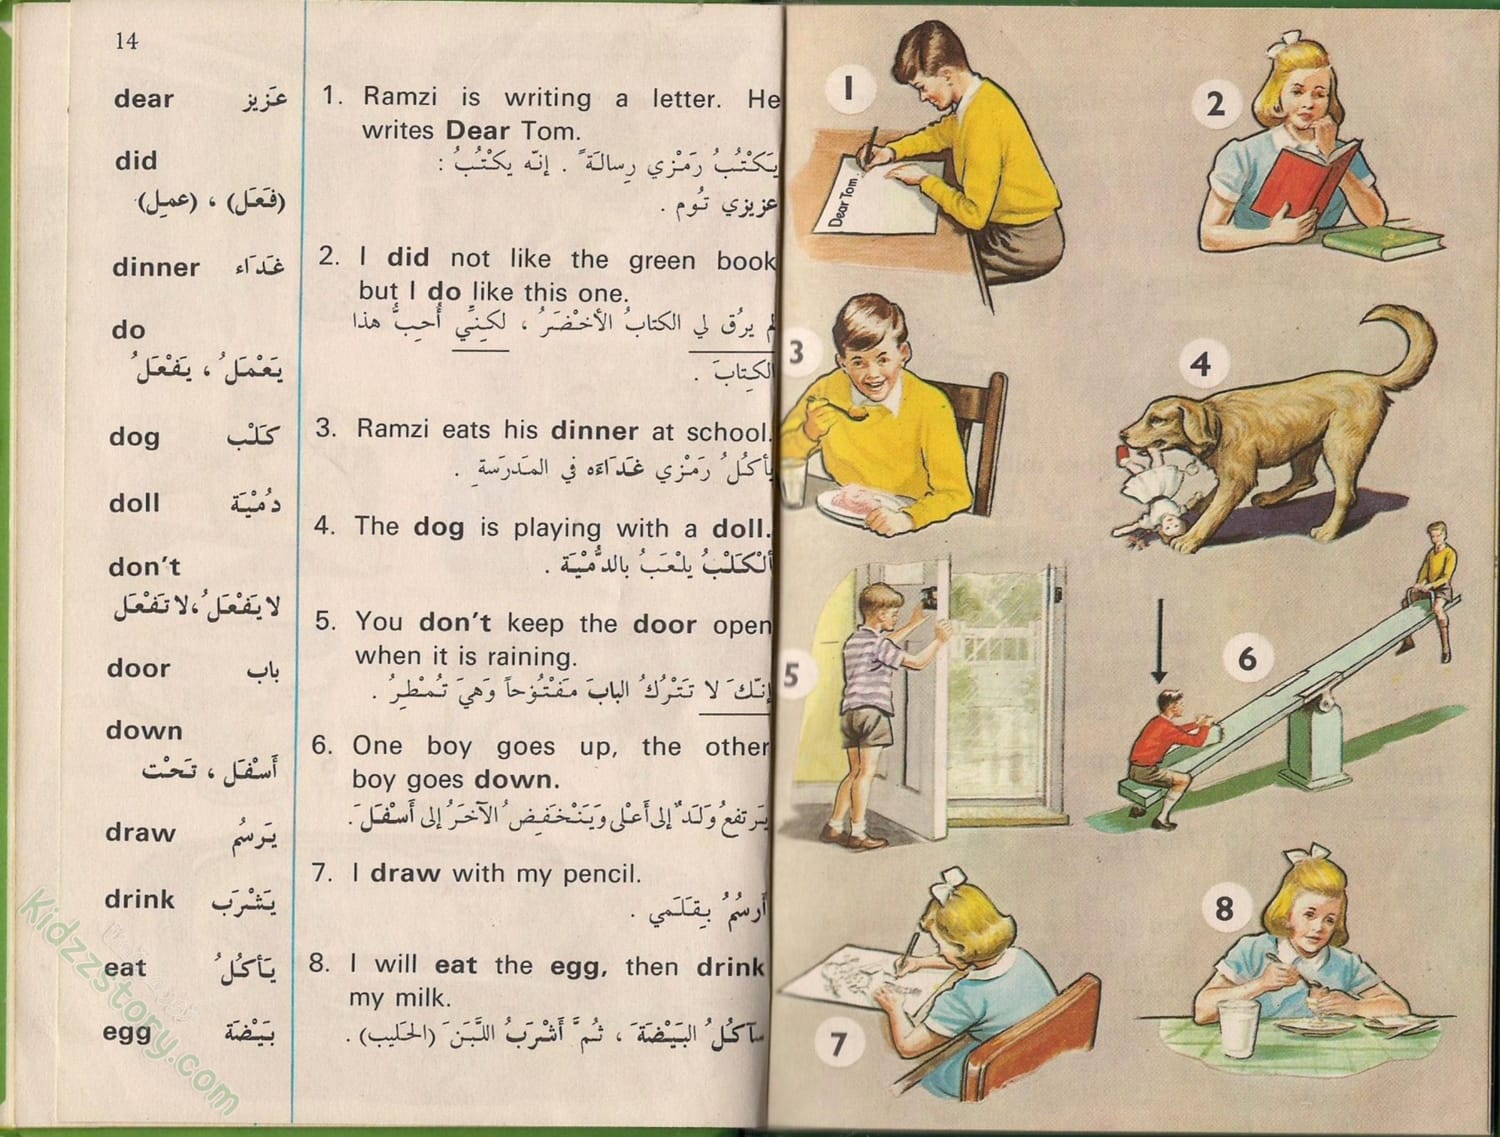 14
dear عَزيز
did
(فَعَلَ) ، (عمِل)
dinner غَدَاء
do
يَعْمَلُ ، يَفْعَلُ
dog كَلْب
doll دُمْيَة
don't
لا يَفْعَلُ، لا تَفْعَل
door باب
down
أَسْفَل ، تَحْت
draw يَرسُم
drink يَشْرَب
eat يَأكُلُ
egg بَيْضَة
1. Ramzi is writing a letter. He
writes Dear Tom.
يَكْتُبُ رَمْزي رِسالَةً . إنّه يكْتُبُ :
عزيزي تُوم .
2. I did not like the green book
but I do like this one.
لم يرُق لي الكتابُ الأخْضَرُ ، لكِنّي أُحِبُّ هذا
الكِتابَ .
3. Ramzi eats his dinner at school.
يأكُلُ رَمْزي غَدَاءَه في المَدرَسةِ .
4. The dog is playing with a doll.
ألْكَلْبُ يلْعَبُ بالدُّمْيَة .
5. You don't keep the door open
when it is raining.
إنّكَ لا تَتْرُكُ البابَ مَفْتُوْحاً وَهيَ تُمْطِرُ .
6. One boy goes up, the other
boy goes down.
يَرتفعُ وَلَدٌ إلى أَعْلى وَيَنْخَفِضُ الآخَرُ إلى أَسْفَلَ .
7. I draw with my pencil.
أَرسُمُ بِقَلَمي .
8. I will eat the egg, then drink
my milk.
سَآكُلُ البَيْضَةَ ، ثُمَّ أَشْرَبُ اللَّبَنَ (الحَليب) .
Kidzzstory.com
1
Dear Tom.
2
3
4
5
6
7
8